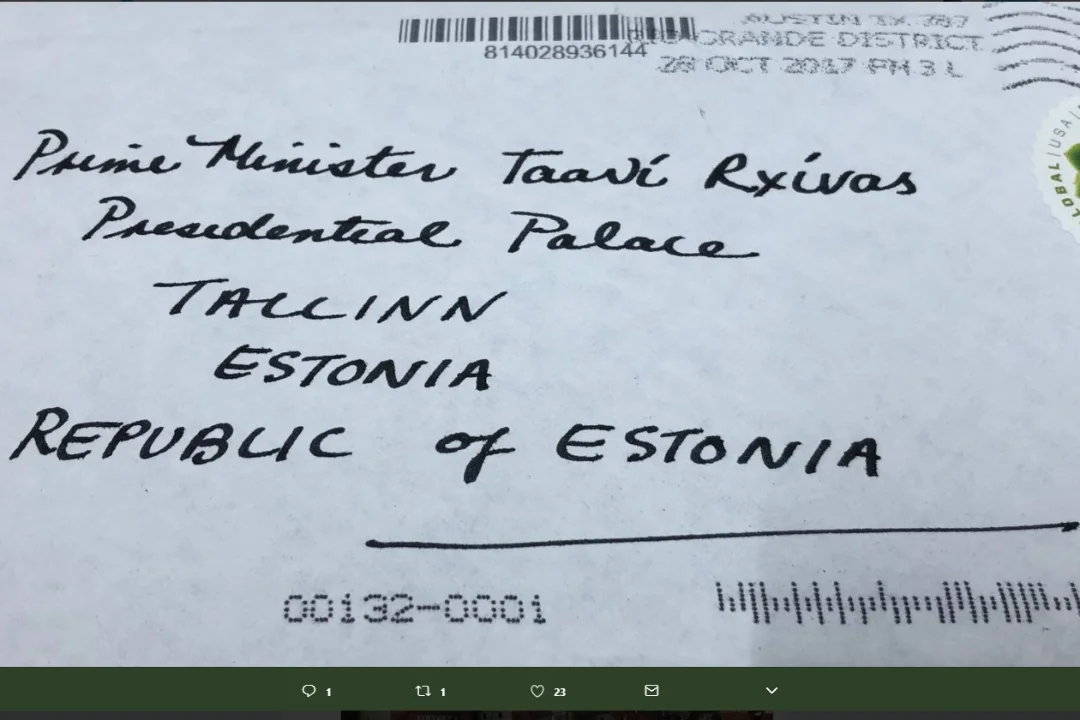 AUSTIN TX 787
814028936144
RIO GRANDE DISTRICT
28 OCT 2017 PM 3 L
OBAL|USA|
Prime Minister Taavi Rxivas
Presidential Palace
TALLINN
ESTONIA
REPUBLIC of ESTONIA
00132-0001
1 1 23